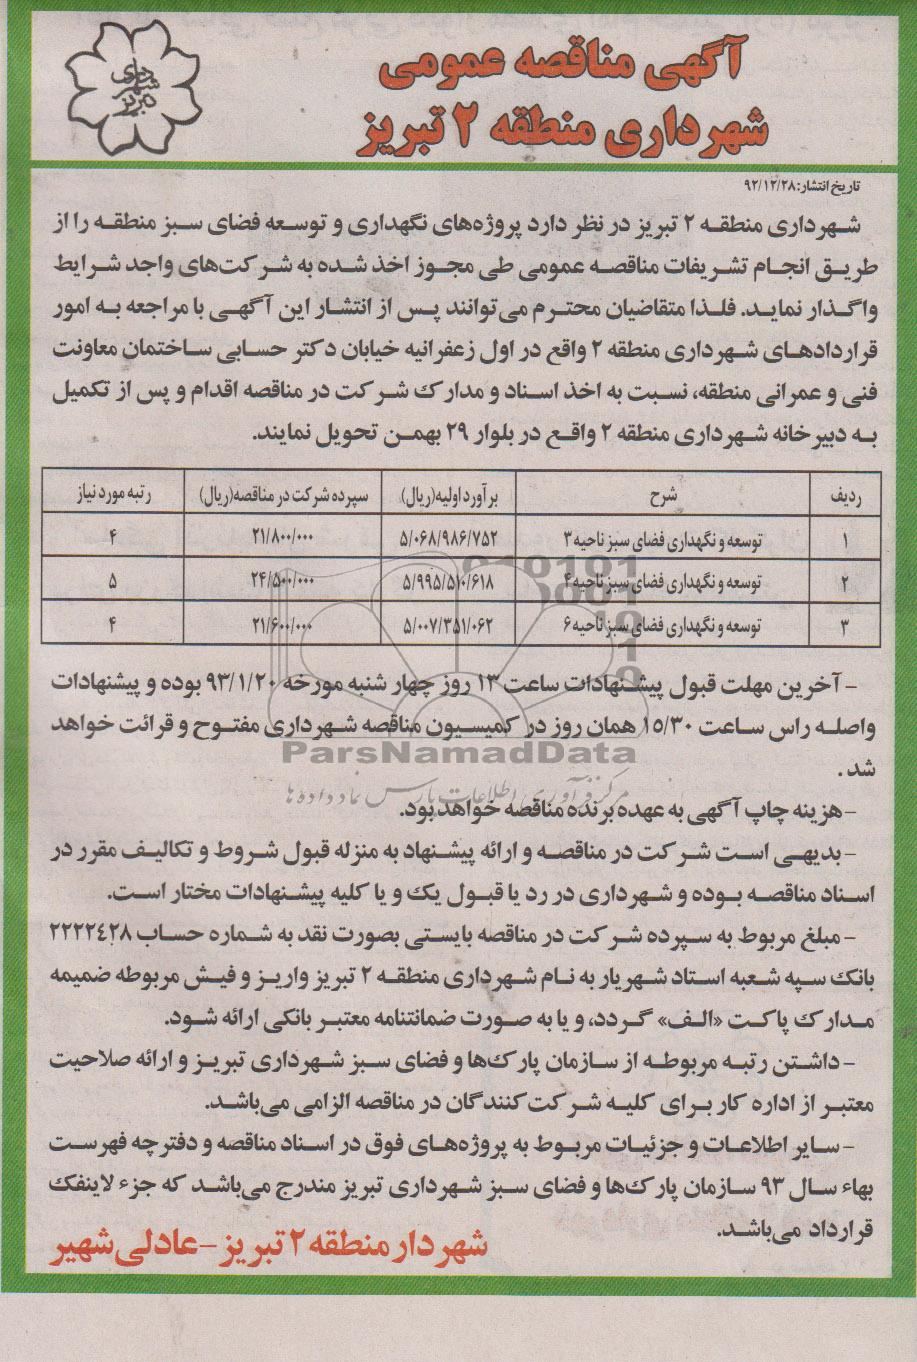 شهرداری تبریز
آگهی مناقصه عمومی
شهرداری منطقه ۲ تبریز
تاریخ انتشار: ۹۲/۱۲/۲۸
شهرداری منطقه ۲ تبریز در نظر دارد پروژه‌های نگهداری و توسعه فضای سبز منطقه را از
طریق انجام تشریفات مناقصه عمومی طی مجوز اخذ شده به شرکت‌های واجد شرایط
واگذار نماید. فلذا متقاضیان محترم می‌توانند پس از انتشار این آگهی با مراجعه به امور
قراردادهای شهرداری منطقه ۲ واقع در اول زعفرانیه خیابان دکتر حسابی ساختمان معاونت
فنی و عمرانی منطقه، نسبت به اخذ اسناد و مدارک شرکت در مناقصه اقدام و پس از تکمیل
به دبیرخانه شهرداری منطقه ۲ واقع در بلوار ۲۹ بهمن تحویل نمایند.
ردیف شرح برآورد اولیه(ریال) سپرده شرکت در مناقصه(ریال) رتبه مورد نیاز
۱ توسعه و نگهداری فضای سبز ناحیه ۳ ۵/۰۶۸/۹۸۶/۷۵۲ ۲۱/۸۰۰/۰۰۰ ۴
۲ توسعه و نگهداری فضای سبز ناحیه ۴ ۵/۹۹۵/۵۱۰/۶۱۸ ۲۴/۵۰۰/۰۰۰ ۵
۳ توسعه و نگهداری فضای سبز ناحیه ۶ ۵/۰۰۷/۳۵۱/۰۶۲ ۲۱/۶۰۰/۰۰۰ ۴
– آخرین مهلت قبول پیشنهادات ساعت ۱۳ روز چهار شنبه مورخه ۹۳/۱/۲۰ بوده و پیشنهادات
واصله راس ساعت ۱۵/۳۰ همان روز در کمیسیون مناقصه شهرداری مفتوح و قرائت خواهد
شد.
ParsNamadData
مرکز فرآوری اطلاعات پارس نماد داده‌ها
– هزینه چاپ آگهی به عهده برنده مناقصه خواهد بود.
– بدیهی است شرکت در مناقصه و ارائه پیشنهاد به منزله قبول شروط و تکالیف مقرر در
اسناد مناقصه بوده و شهرداری در رد یا قبول یک و یا کلیه پیشنهادات مختار است.
– مبلغ مربوط به سپرده شرکت در مناقصه بایستی بصورت نقد به شماره حساب ۲۲۲۲۴۲۸
بانک سپه شعبه استاد شهریار به نام شهرداری منطقه ۲ تبریز واریز و فیش مربوطه ضمیمه
مدارک پاکت «الف» گردد، و یا به صورت ضمانتنامه معتبر بانکی ارائه شود.
– داشتن رتبه مربوطه از سازمان پارک‌ها و فضای سبز شهرداری تبریز و ارائه صلاحیت
معتبر از اداره کار برای کلیه شرکت‌کنندگان در مناقصه الزامی می‌باشد.
– سایر اطلاعات و جزئیات مربوط به پروژه‌های فوق در اسناد مناقصه و دفترچه فهرست
بهاء سال ۹۳ سازمان پارک‌ها و فضای سبز شهرداری تبریز مندرج می‌باشد که جزء لاینفک
قرارداد می‌باشد.
شهردار منطقه ۲ تبریز – عادلی شهیر